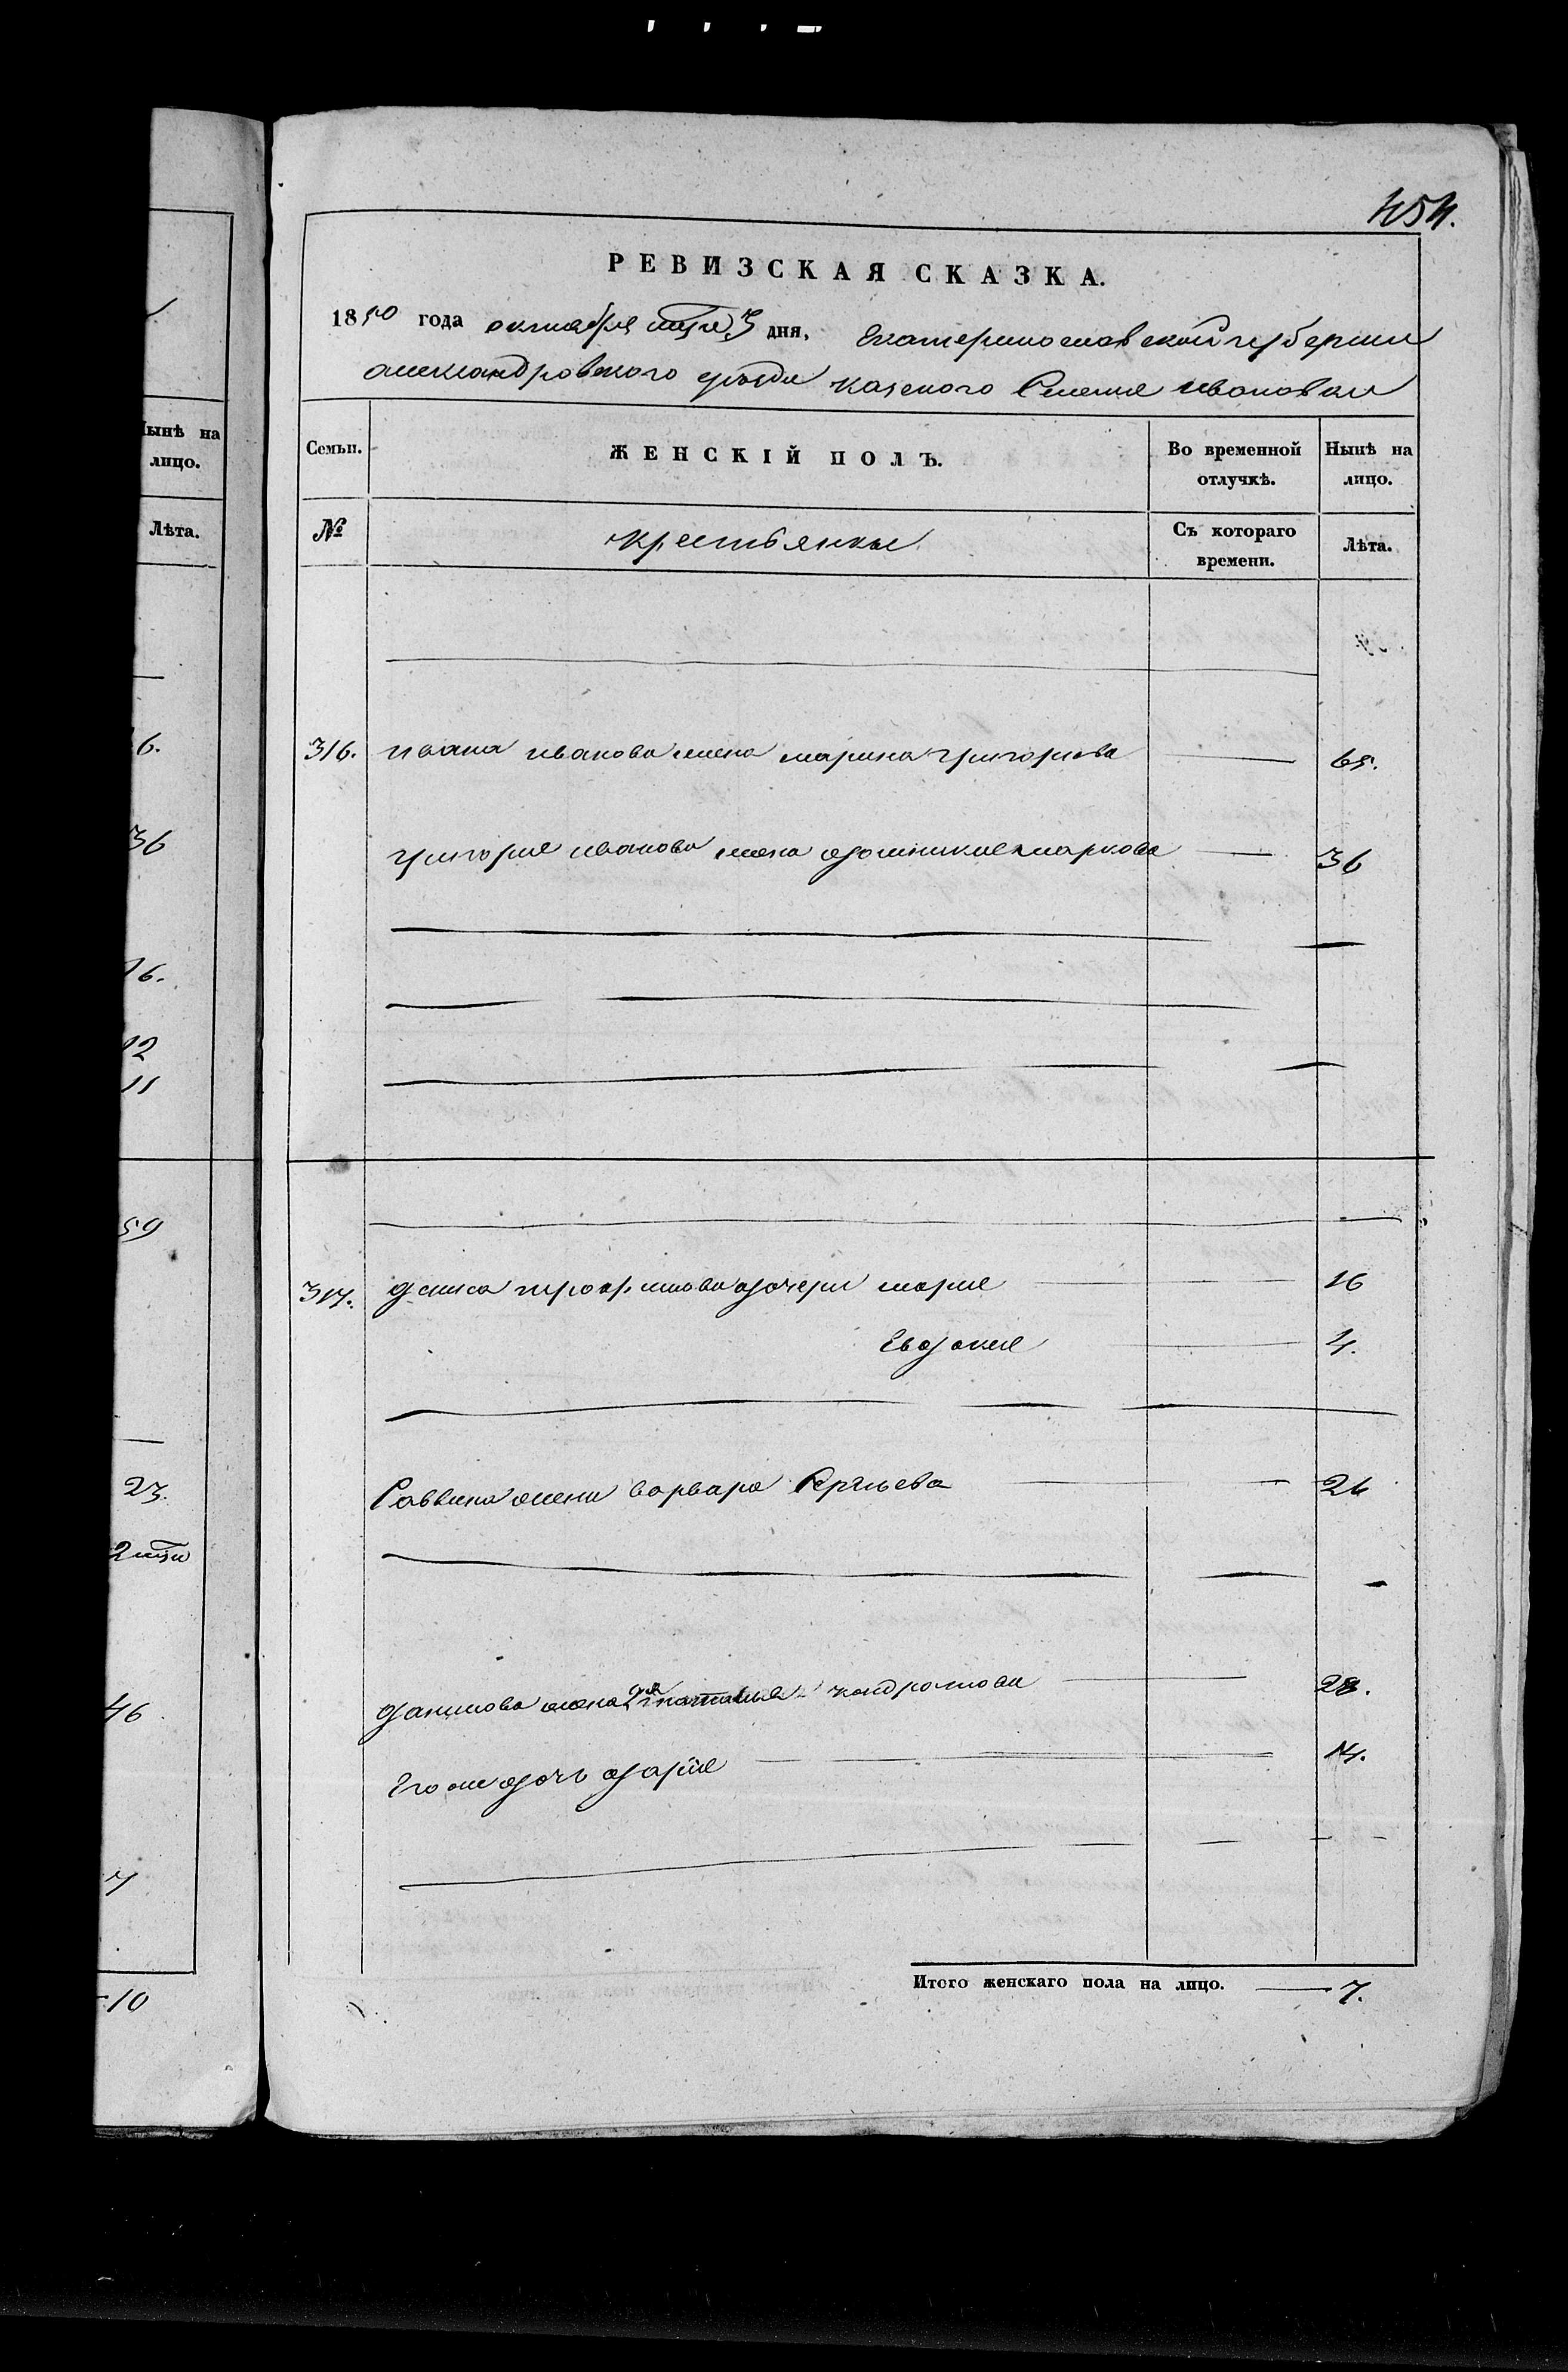 454.
РЕВИЗСКАЯ СКАЗКА.
1850 года октября 3 дня, Екатеринославской губернии
александровского уезда казеного Селения ивановки
Семьи.
ЖЕНСКІЙ ПОЛЪ.
Во временной отлучкѣ.
Нынѣ на лицо.
№
крестьянки
Съ котораго времени.
Лѣта.
316. ивана иванова жена марина григорьева 65.
григория иванова жена домникия маркова 36
317. дениса трофимова дочери мария 16
Евдокия 4.
Саввина жена варвара Сергиева 26
данилова жена 2я наталия кондратова 28.
Его же дочь дарія 14.
Итого женскаго пола на лицо. 7.
Нынѣ на
лицо.
Лѣта.
6.
36
16.
12
11
59
23.
46
7
10